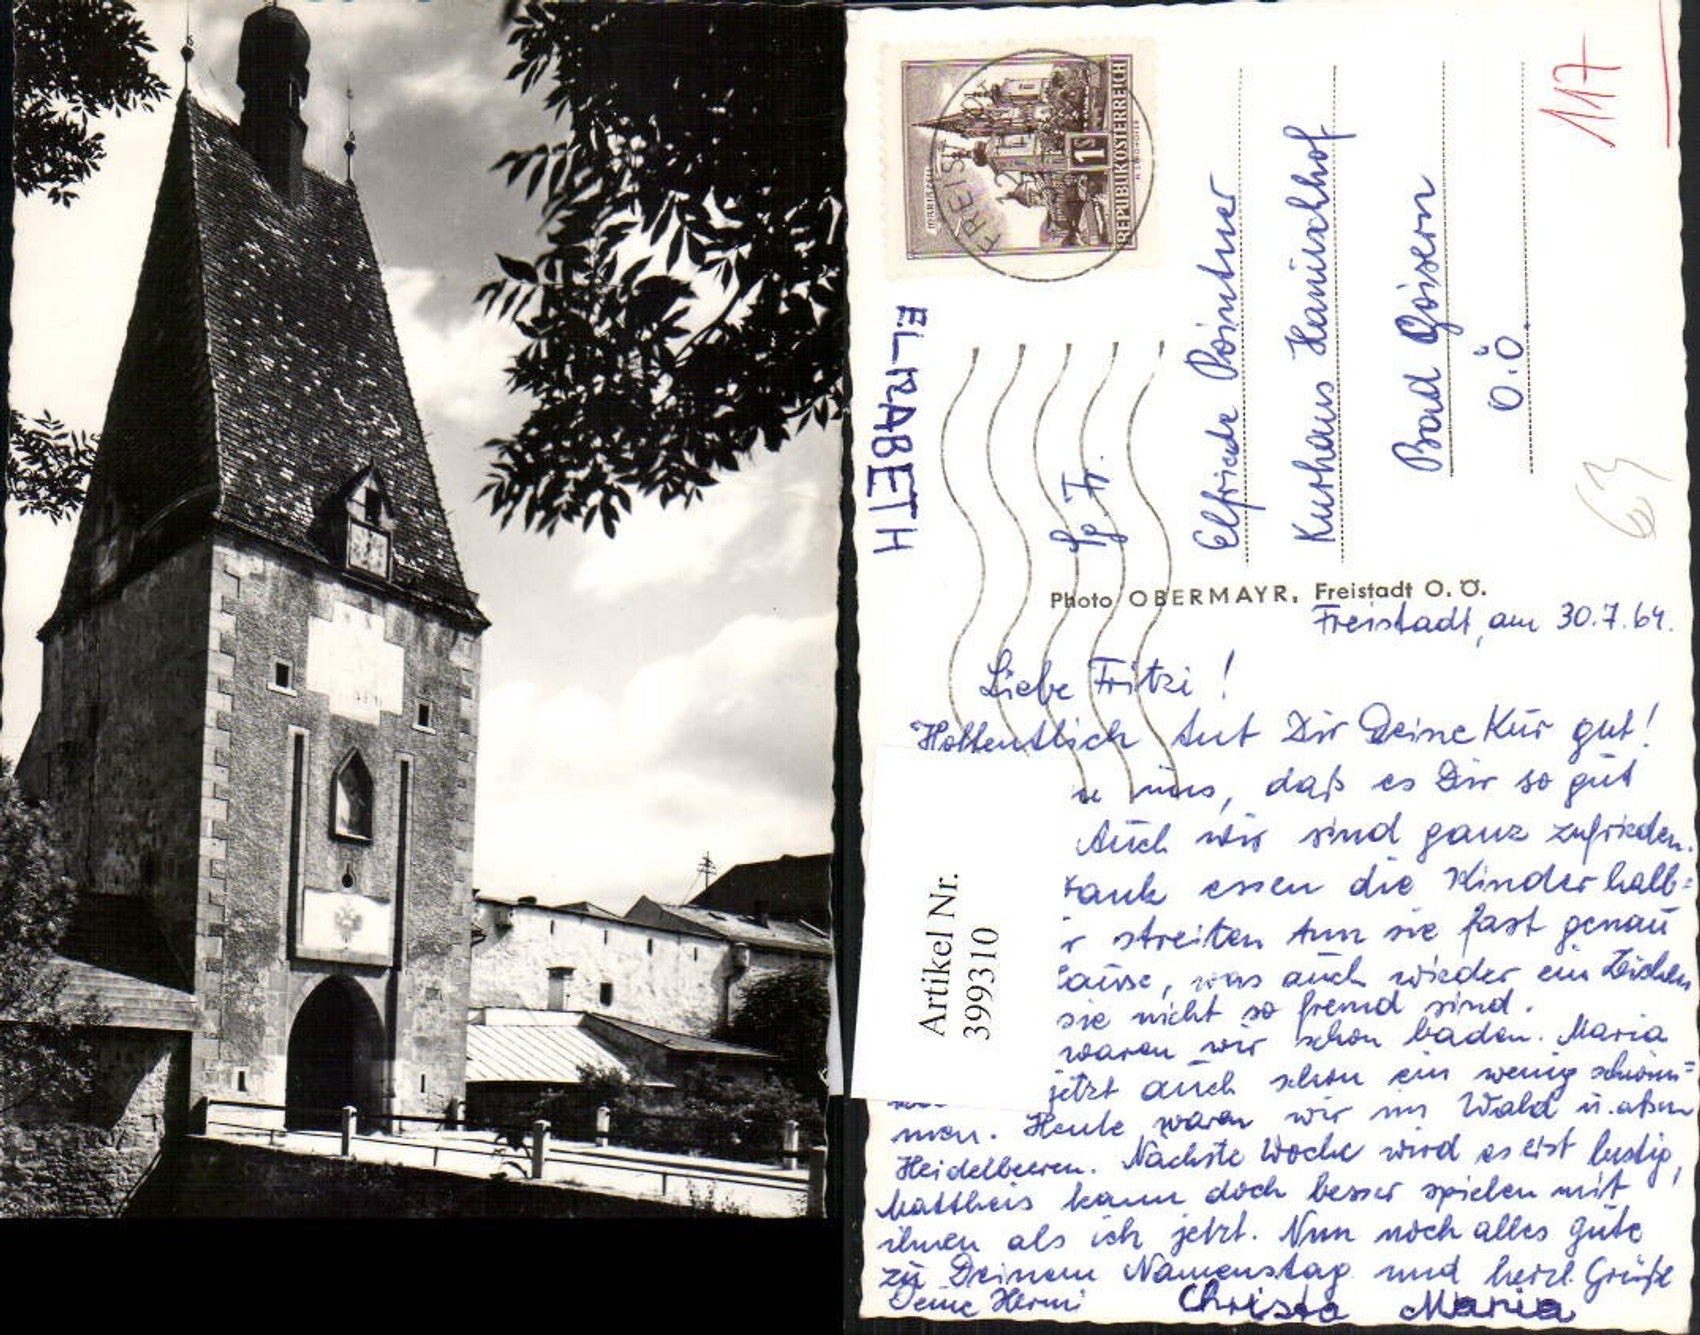 117
REPUBLIK ÖSTERREICH
1
FREIST
ELISABETH
Sg. Fr.
Elfriede Pointner
Kurhaus Hanischhof
Bad Goisern
O.Ö.
63
Photo OBERMAYR, Freistadt O. Ö.
Freistadt, am 30.7.64.
Liebe Fritzi!
Hoffentlich tut Dir Deine Kur gut!
uns, daß es Dir so gut
Auch wir sind ganz zufrieden.
essen die Kinder halb=
streiten tun sie fast genau
, was auch wieder ein Zeichen
sie nicht so fremd sind.
waren wir schon baden. Maria
jetzt auch schon ein wenig schwim=
men. Heute waren wir im Wald u. aßen
Heidelbeeren. Nächste Woche wird es erst lustig,
Mattheis kann doch besser spielen mit
ihnen als ich jetzt. Nun noch alles Gute
zu Deinem Namenstag und herzl. Grüße
Deine Hermi Christa Maria
Artikel Nr.
399310